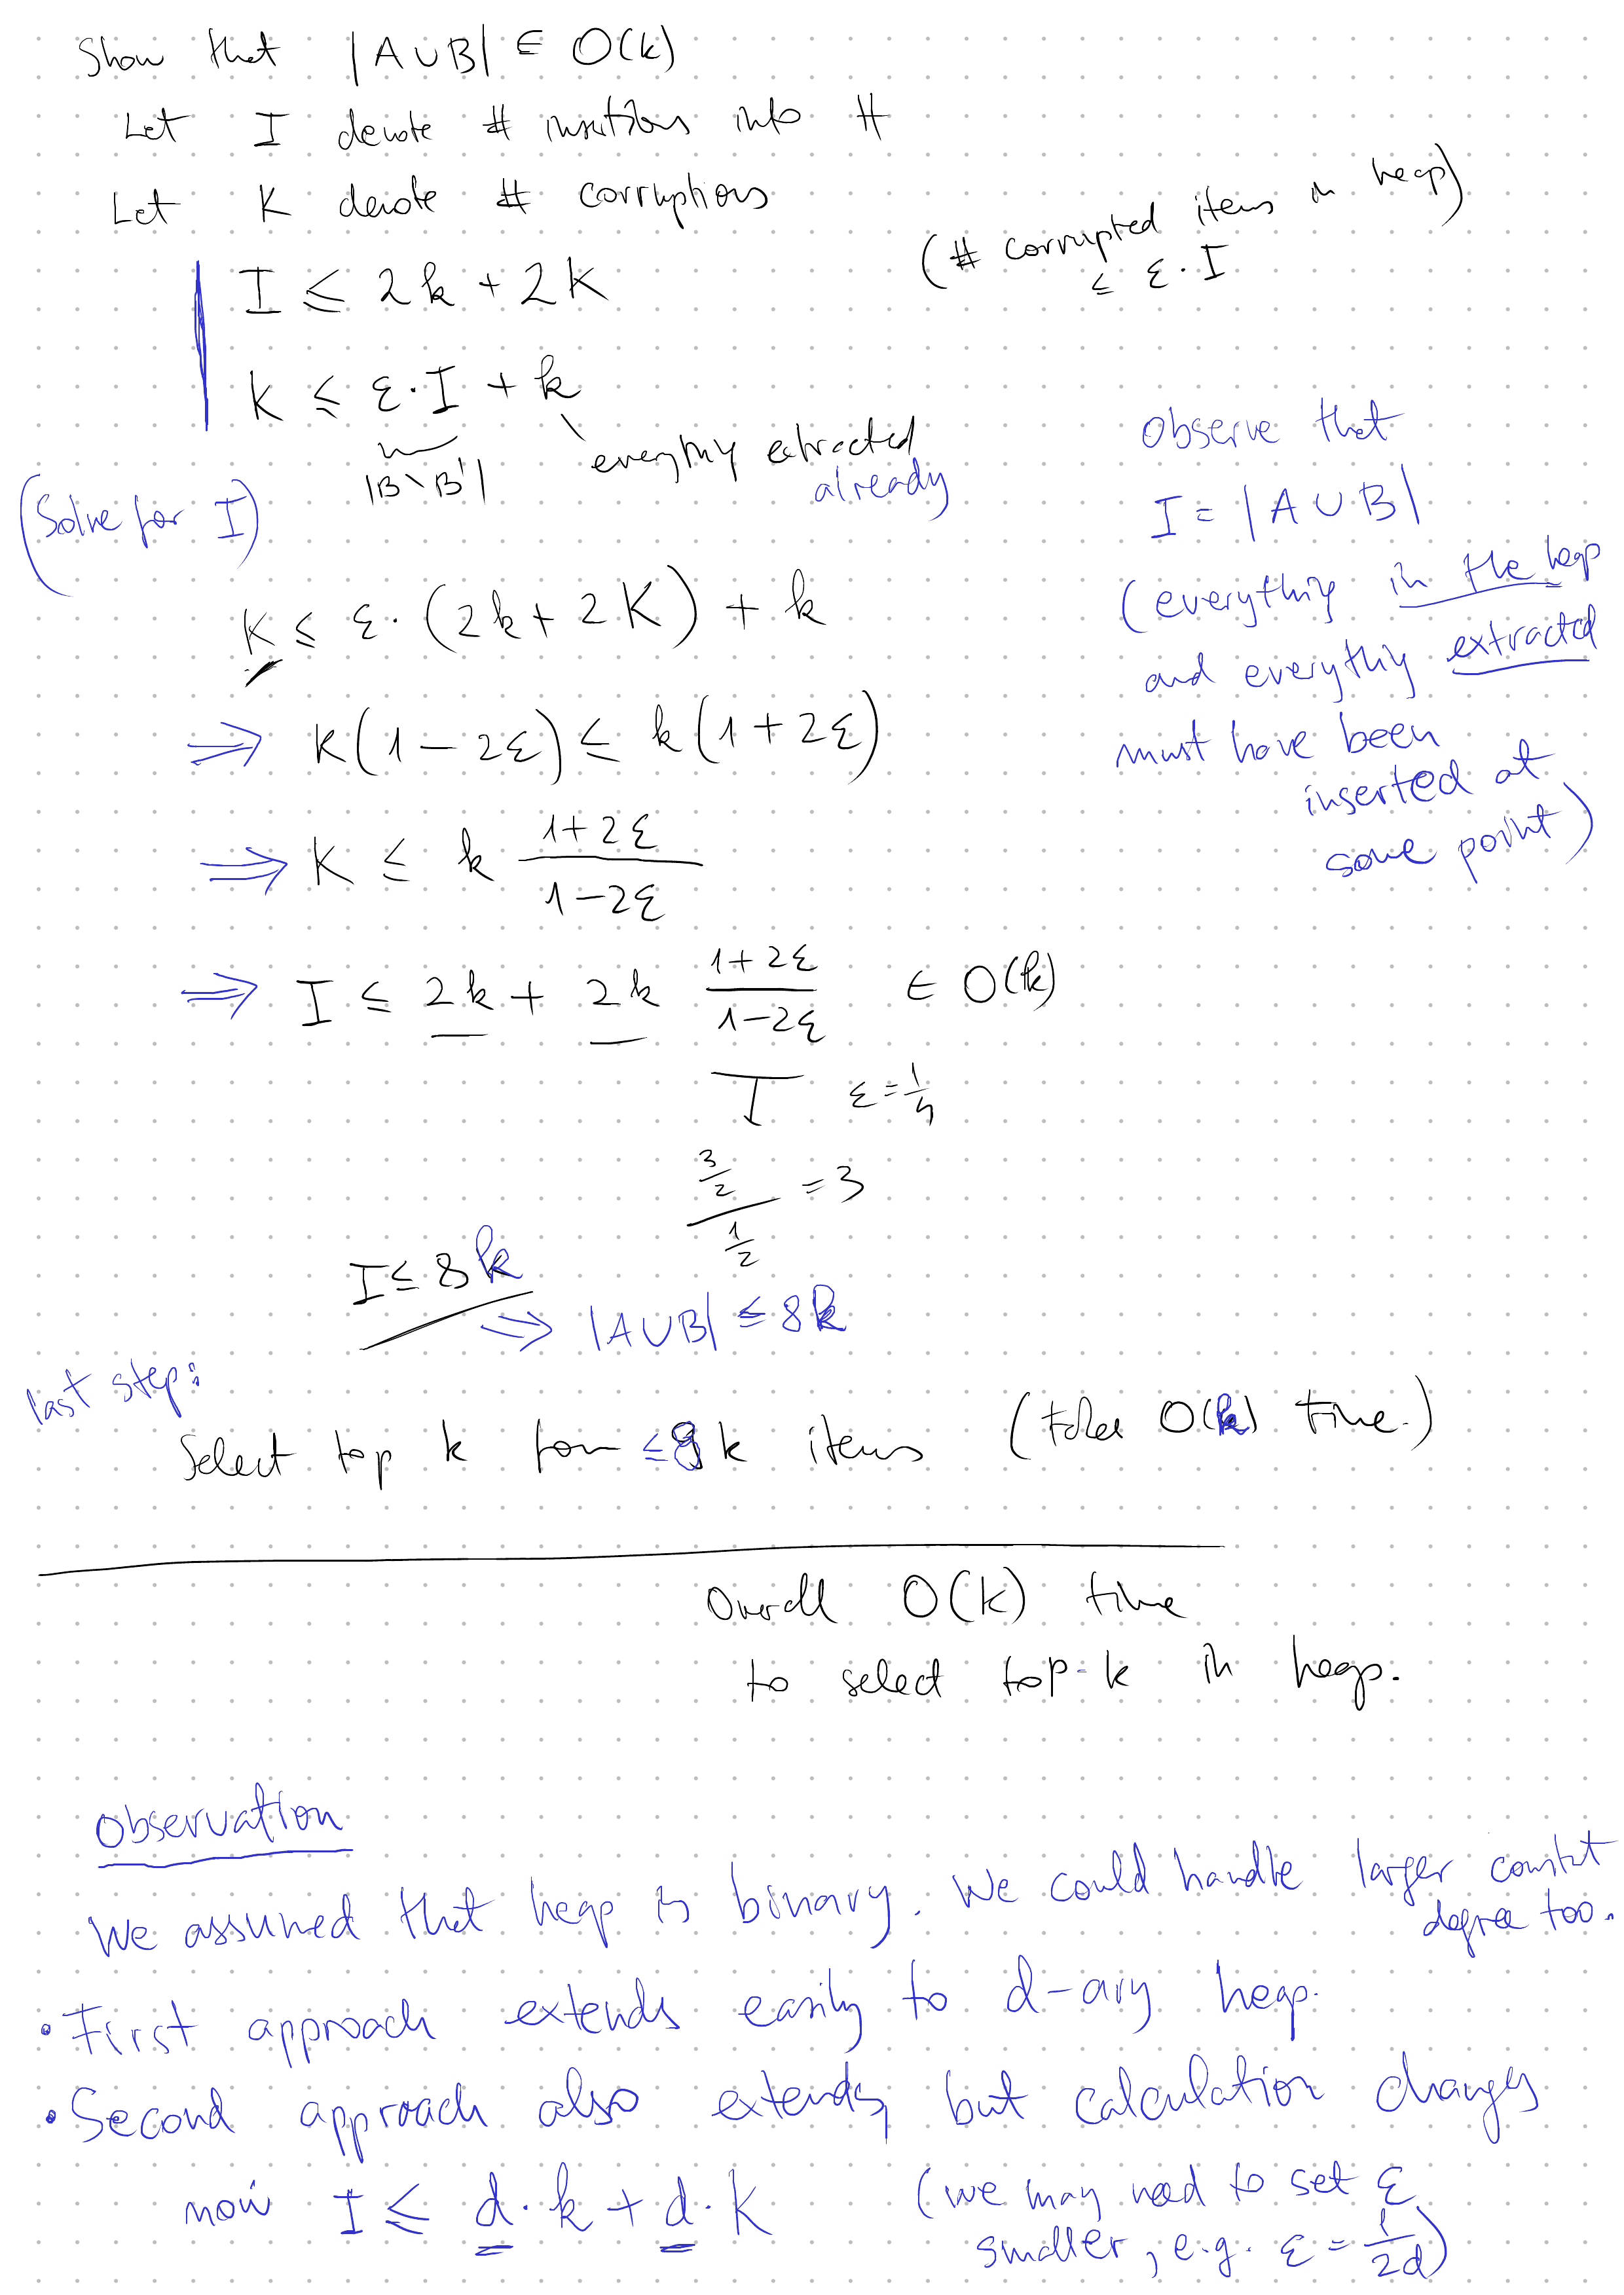 Show that |A ∪ B| ∈ O(k)
Let I denote # insertions into H
Let K denote # corruptions
(# corrupted items in heap)
≤ ε · I
I ≤ 2k + 2K
K ≤ ε · I + k
|B \ B'|
everything extracted
already
Observe that
I = |A ∪ B|
(everything in the heap
and everything extracted
must have been
inserted at
some point)
(Solve for I)
K ≤ ε · (2k + 2K) + k
⇒ K(1 − 2ε) ≤ k(1 + 2ε)
⇒ K ≤ k (1+2ε)/(1−2ε)
⇒ I ≤ 2k + 2k (1+2ε)/(1−2ε) ∈ O(k)
ε = 1/4
(3/2)/(1/2) = 3
I ≤ 8k
⇒ |A ∪ B| ≤ 8k
last step:
Select top k from ≤ 8k items (takes O(k) time.)
Overall O(k) time
to select top-k in heap.
Observation
We assumed that heap is binary. We could handle larger constant
degree too.
• First approach extends easily to d-ary heap.
• Second approach also extends, but calculation changes
now I ≤ d · k + d · K
(we may need to set ε
smaller, e.g. ε = 1/2d)